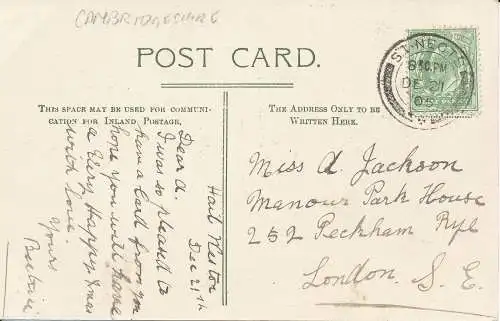 CAMBRIDGESHIRE
POST CARD.
THIS SPACE MAY BE USED FOR COMMUNI-
CATION FOR INLAND POSTAGE,
THE ADDRESS ONLY TO BE
WRITTEN HERE.
ST. NEOTS
8 PM
DE 21
05
Hail Weston
Dec 21st
Dear A.
I was so pleased to
have a Card from you
hope you will have
a Very Happy Xmas
with love.
Yours
Miss A Jackson
Manour Park House
252 Peckham Rye
London. S. E.